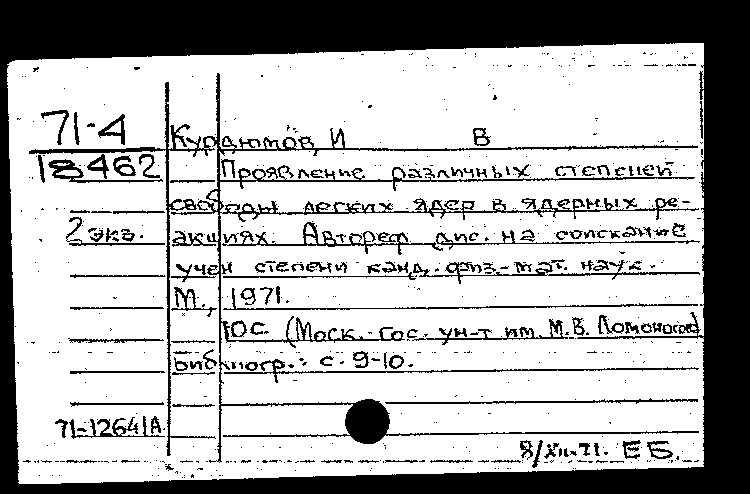 71-4
18462
Курдюмов, И В
Проявление различных степеней
свободы легких ядер в ядерных ре-
2 экз. акциях. Автореф. дис. на соискание
учен степени канд. физ.-мат. наук.
М., 1971.
10с (Моск. гос. ун-т им. М.В. Ломоносова)
Библиогр.: с. 9-10.
71-12641А
8/XII-71. ЕБ.